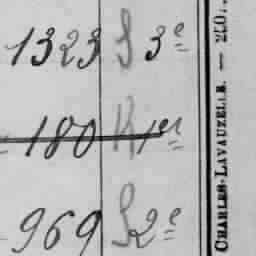 1323 S 3e
180 R 1er
969 S 2e
CHARLES-LAVAUZELLE. — 250.